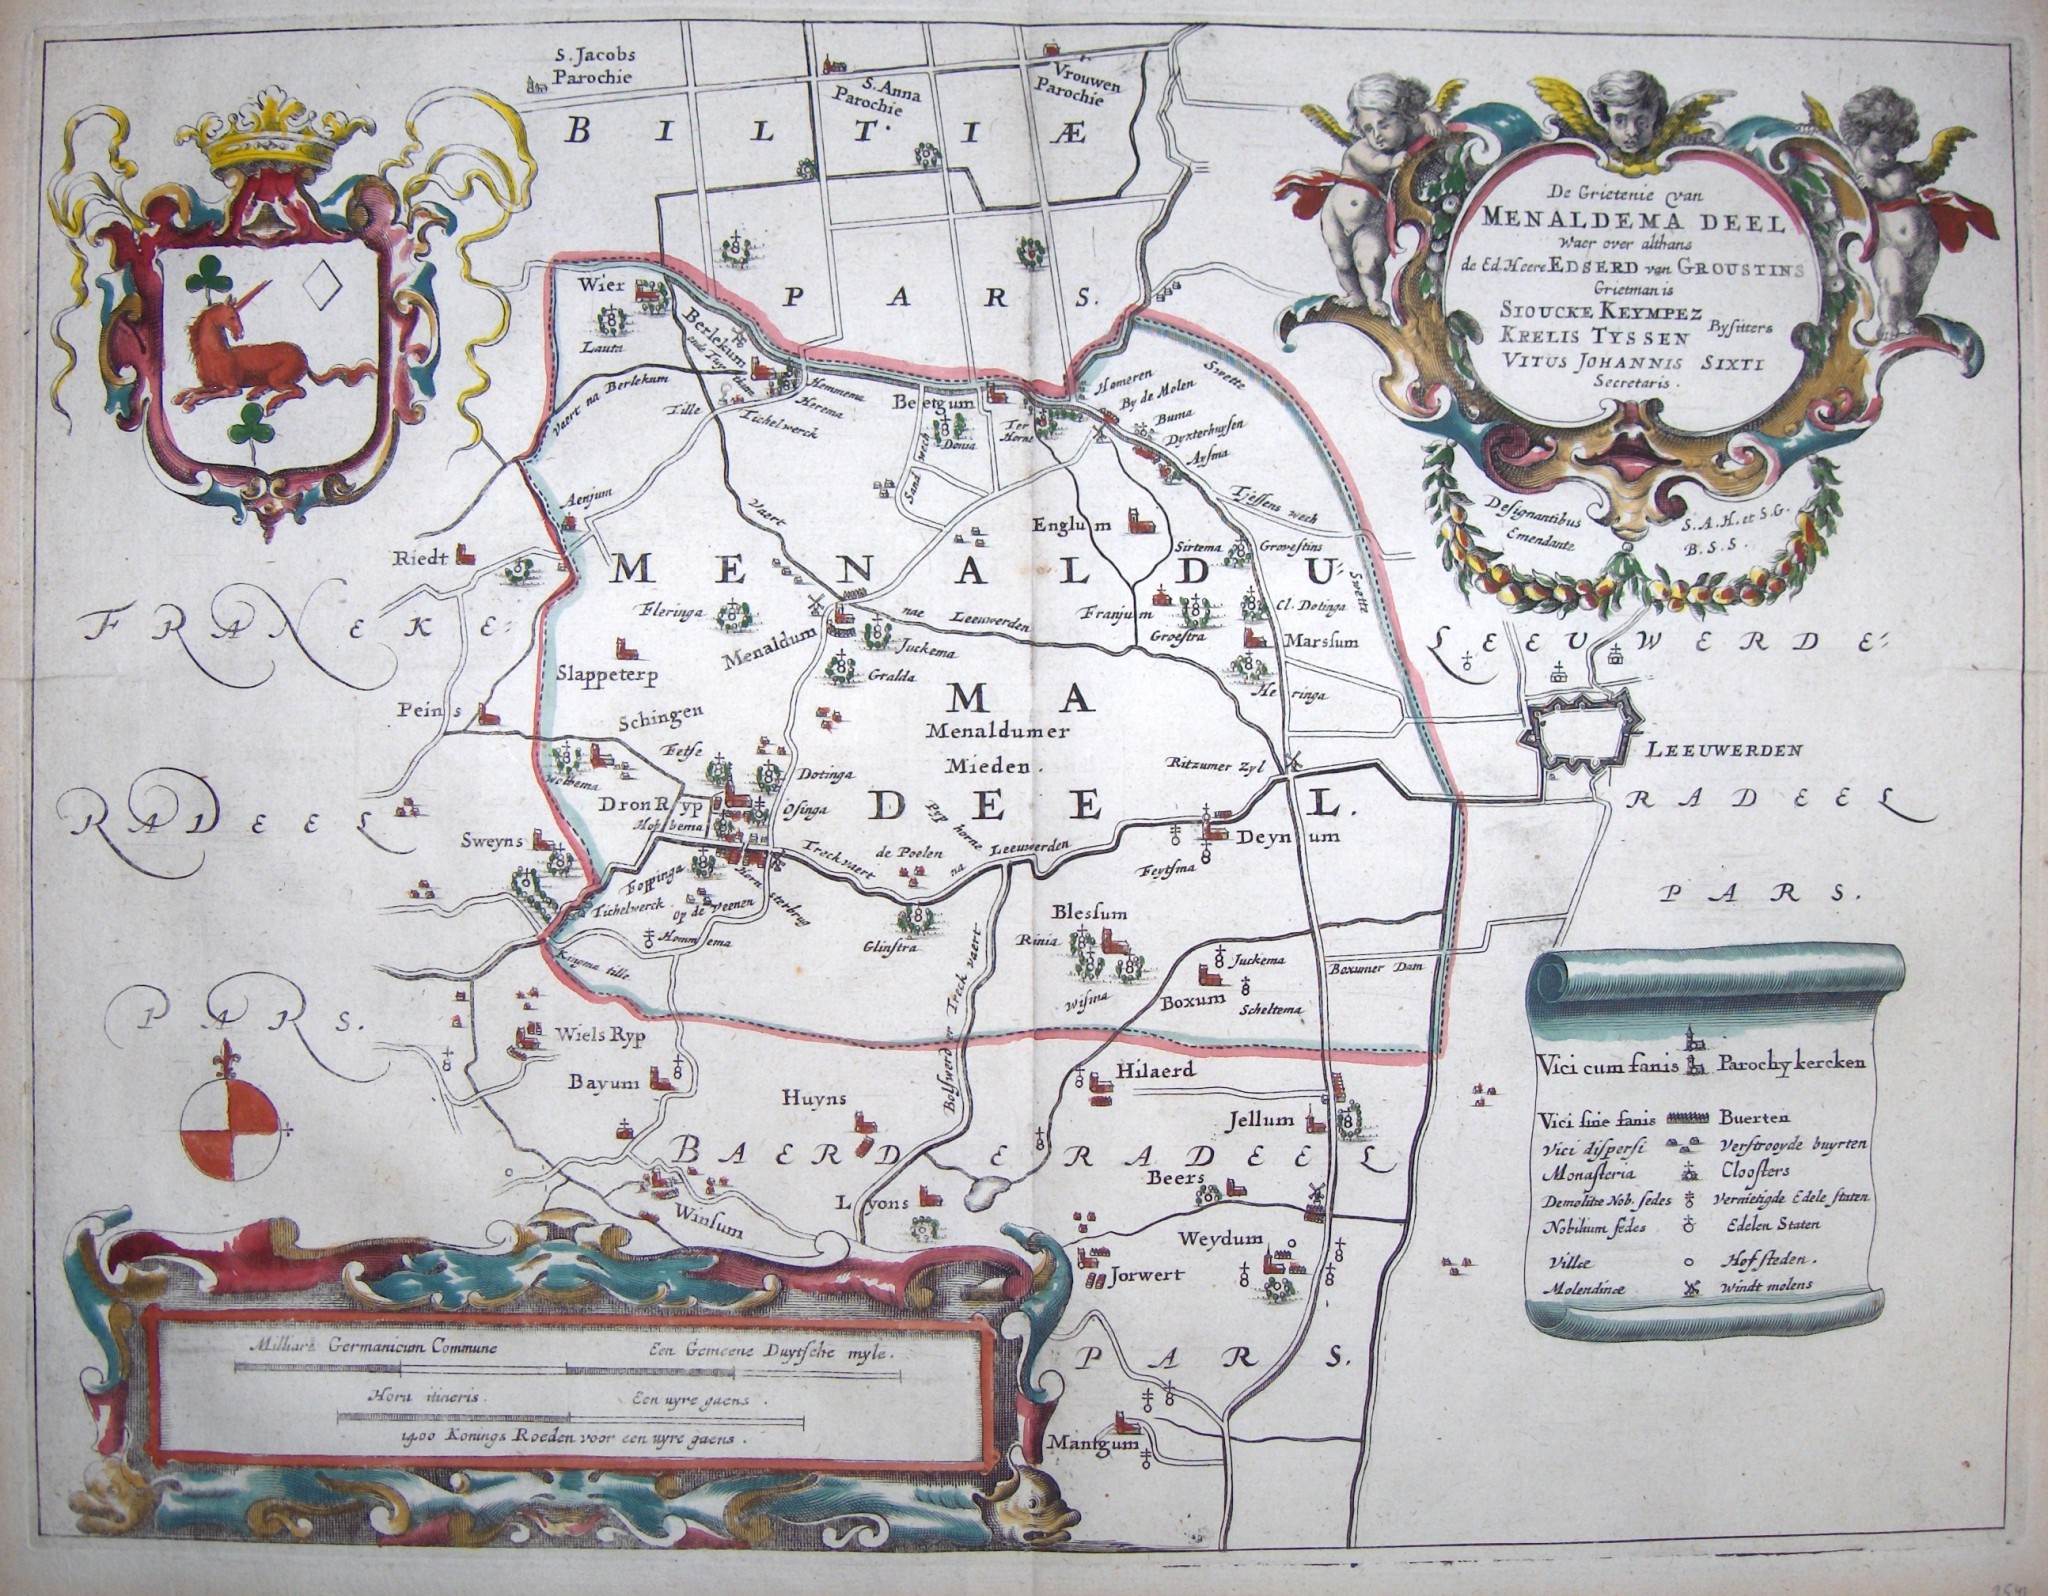 S. Jacobs
Parochie
S. Anna
Parochie
Vrouwen
Parochie
BILTIÆ
PARS.
De Grietenie van
MENALDEMA DEEL
Waer over althans
de Ed. Heere EDSERD van GROUSTINS
Grietman is
SIOUCKE KEYMPEZ
KRELIS TYSSEN
Bysitters
VITUS JOHANNIS SIXTI
Secretaris.
Designantibus
Emendante
S. A. H. et S. G.
B. S. S.
Wier
Lauta
Berlekum
Vaert na Berlekum
Tille
Tichelwerck
Hemmema
Herema
Beetgum
Donia
Sand wech
Ter
Horne
Homeren
By de Molen
Buma
Dyxterhuysen
Aysma
Swette
Tjessens wech
Swette
Aenjum
Vaert
Englum
Sirtema
Grovestins
Riedt
MENALDU
Fleringa
nae Leeuwerden
Franjum
Groestra
Cl. Dotinga
Menaldum
Juckema
Marssum
Gralda
Heringa
Slappeterp
FRANEKE
RADEEL
PARS.
LEEUWERDE
LEEUWERDEN
RADEEL
PARS.
Peins
Schingen
MA
Menaldumer
Mieden.
Fetse
Dotinga
Ritzumer Zyl
DronRyp
Osinga
Hobbema
DEEL.
Pyp horne
Sweyns
Treckvaert
de Poelen
na Leeuwerden
Deynum
Feytsma
Foppinga
Tichelwerck
Op de Veenen
Horn sterbrug
Hommema
Glinstra
Kingma tille
Blessum
Rinia
Wisma
Juckema
Boxum
Scheltema
Boxumer Dam
Bolswerder Treck vaert
Wiels Ryp
Bayum
Huyns
Hilaerd
Jellum
BAERDERADEEL
Beers
Winsum
Lyons
Weydum
Jorwert
PARS.
Mantgum
Vici cum fanis Parochy kercken
Vici sine fanis Buerten
Vici dispersi Verstrooyde buyrten
Monasteria Cloosters
Demolitæ Nob. sedes Vernietigde Edele staten
Nobilium sedes Edelen Staten
Villæ Hofsteden.
Molendinæ Windt molens
Milliare Germanicum Commune
Een Gemeene Duytsche myle.
Hora itineris.
Een uyre gaens.
1400 Konings Roeden voor een uyre gaens.